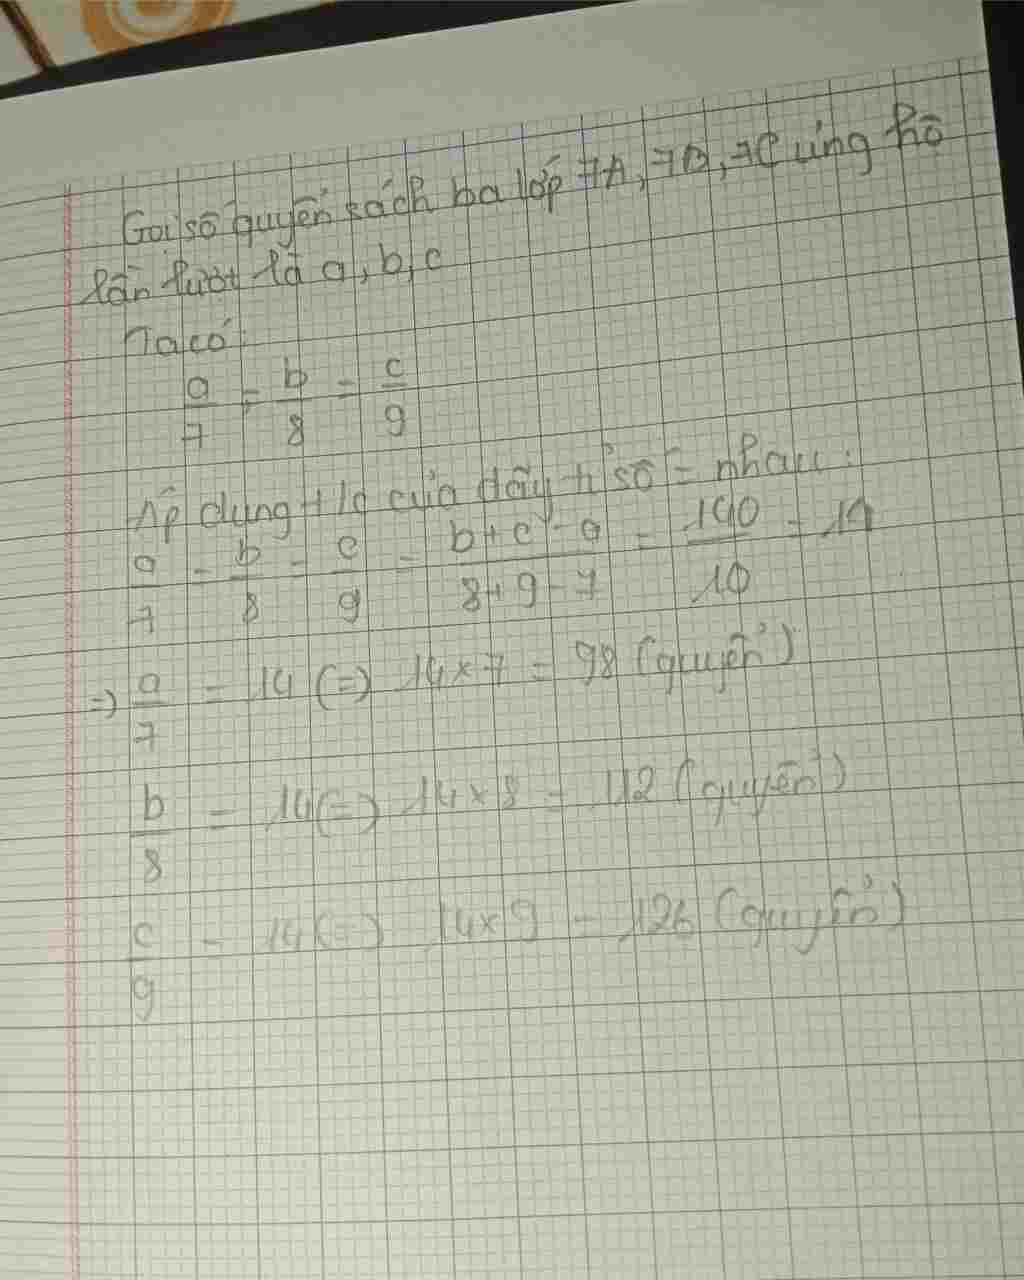 Gọi số quyển sách ba lớp 7A, 7B, 7C ủng hộ
lần lượt là a, b, c
Ta có:
a/7 = b/8 = c/9
Áp dụng t/c của dãy tỉ số = nhau:
a/7 = b/8 = c/9 = b+c-a/8+9-7 = 140/10 = 14
=> a/7 = 14 (=) 14 x 7 = 98 (quyển)
b/8 = 14 (=) 14 x 8 = 112 (quyển)
c/9 = 14 (=) 14 x 9 = 126 (quyển)